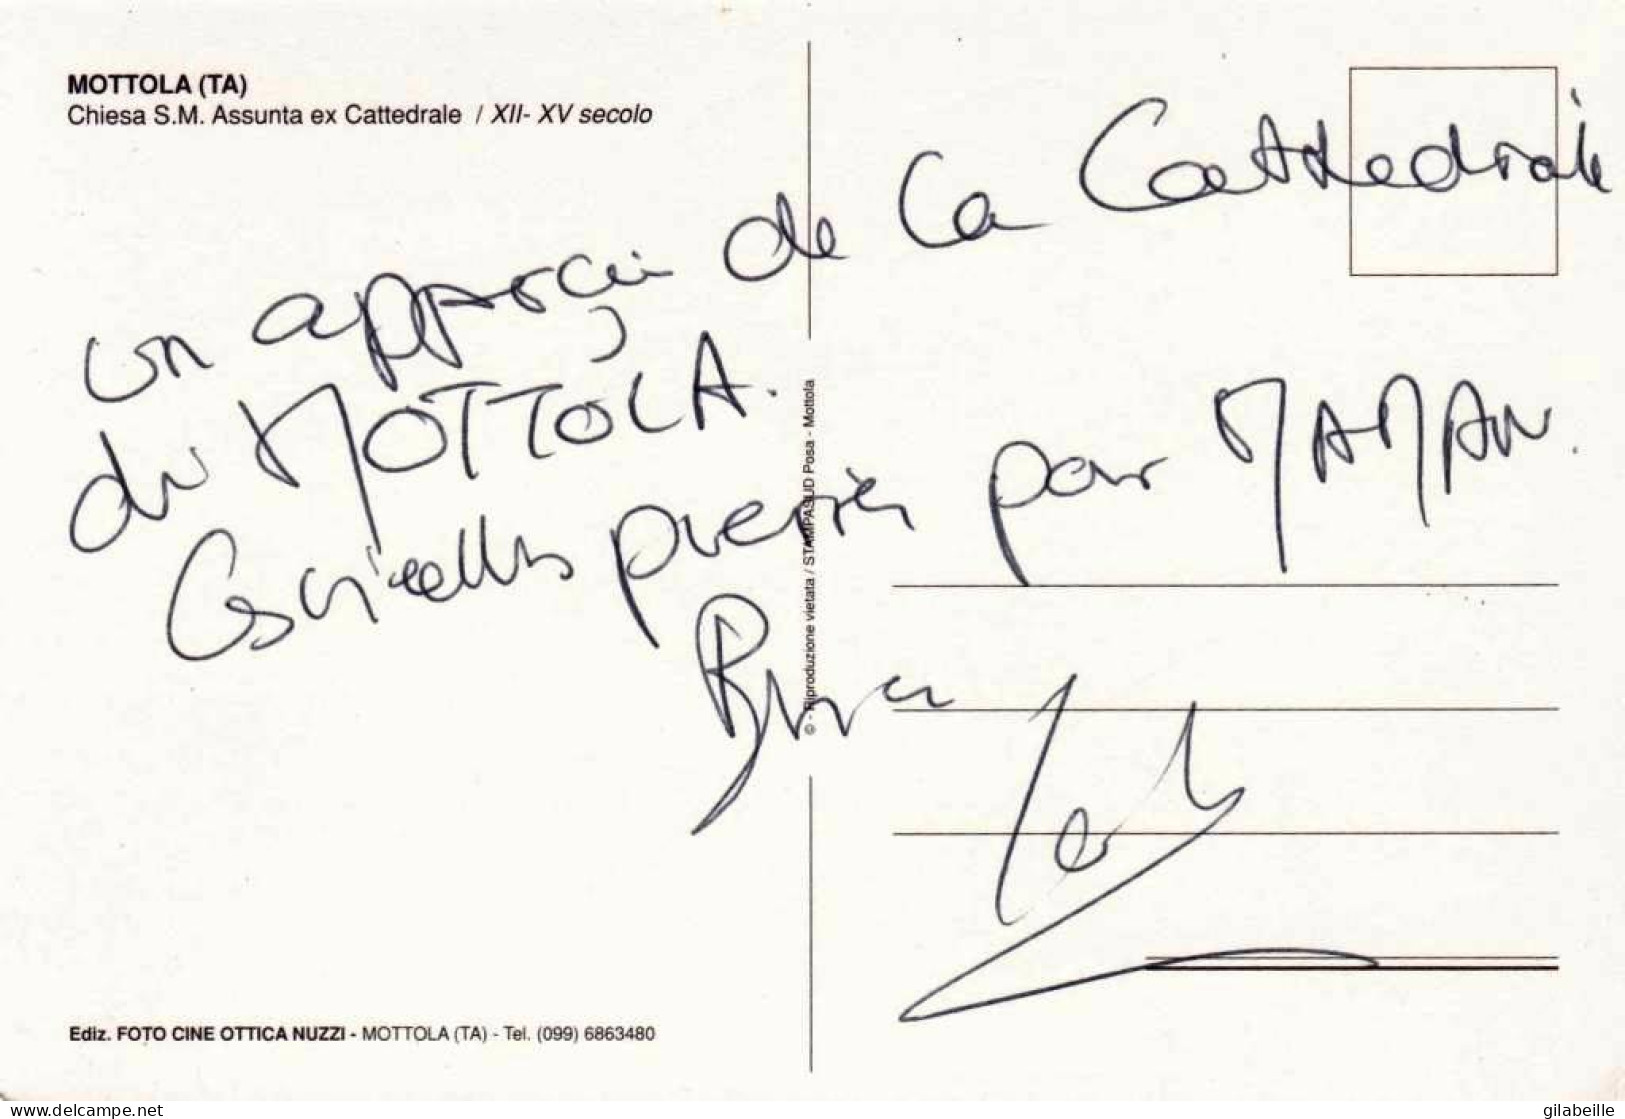 MOTTOLA (TA)
Chiesa S.M. Assunta ex Cattedrale / XII- XV secolo
un apperçu de la Cathedrale
du MOTTOLA.
prier pour MAMAN.
© - Riproduzione vietata / STAMPASUD Posa - Mottola
Ediz. FOTO CINE OTTICA NUZZI - MOTTOLA (TA) - Tel. (099) 6863480
www.delcampe.net
gilabeille